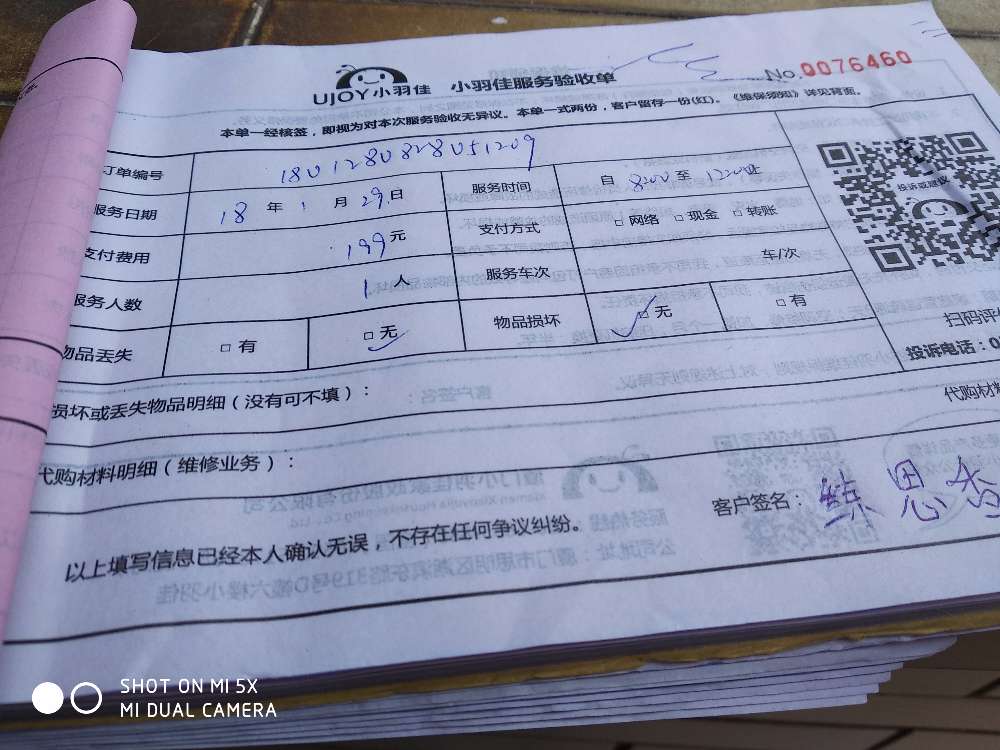 UJOY小羽佳 小羽佳服务验收单 No.0076460
本单一经核签，即视为对本次服务验收无异议。本单一式两份，客户留存一份(红)。《维保须知》详见背面。
订单编号 1801280828051209
服务日期 18 年 1 月 29 日 服务时间 自 8:00 至 12:00 止
支付费用 199 元 支付方式 □ 网络 □ 现金 □ 转账
服务人数 1 人 服务车次 车/次
物品丢失 □ 有 □ 无 物品损坏 □ 无 □ 有
投诉或建议
扫码评
投诉电话：0
损坏或丢失物品明细（没有可不填）：
代购材料明细（维修业务）： 代购材料
以上填写信息已经本人确认无误，不存在任何争议纠纷。 客户签名： 练思香
SHOT ON MI 5X
MI DUAL CAMERA